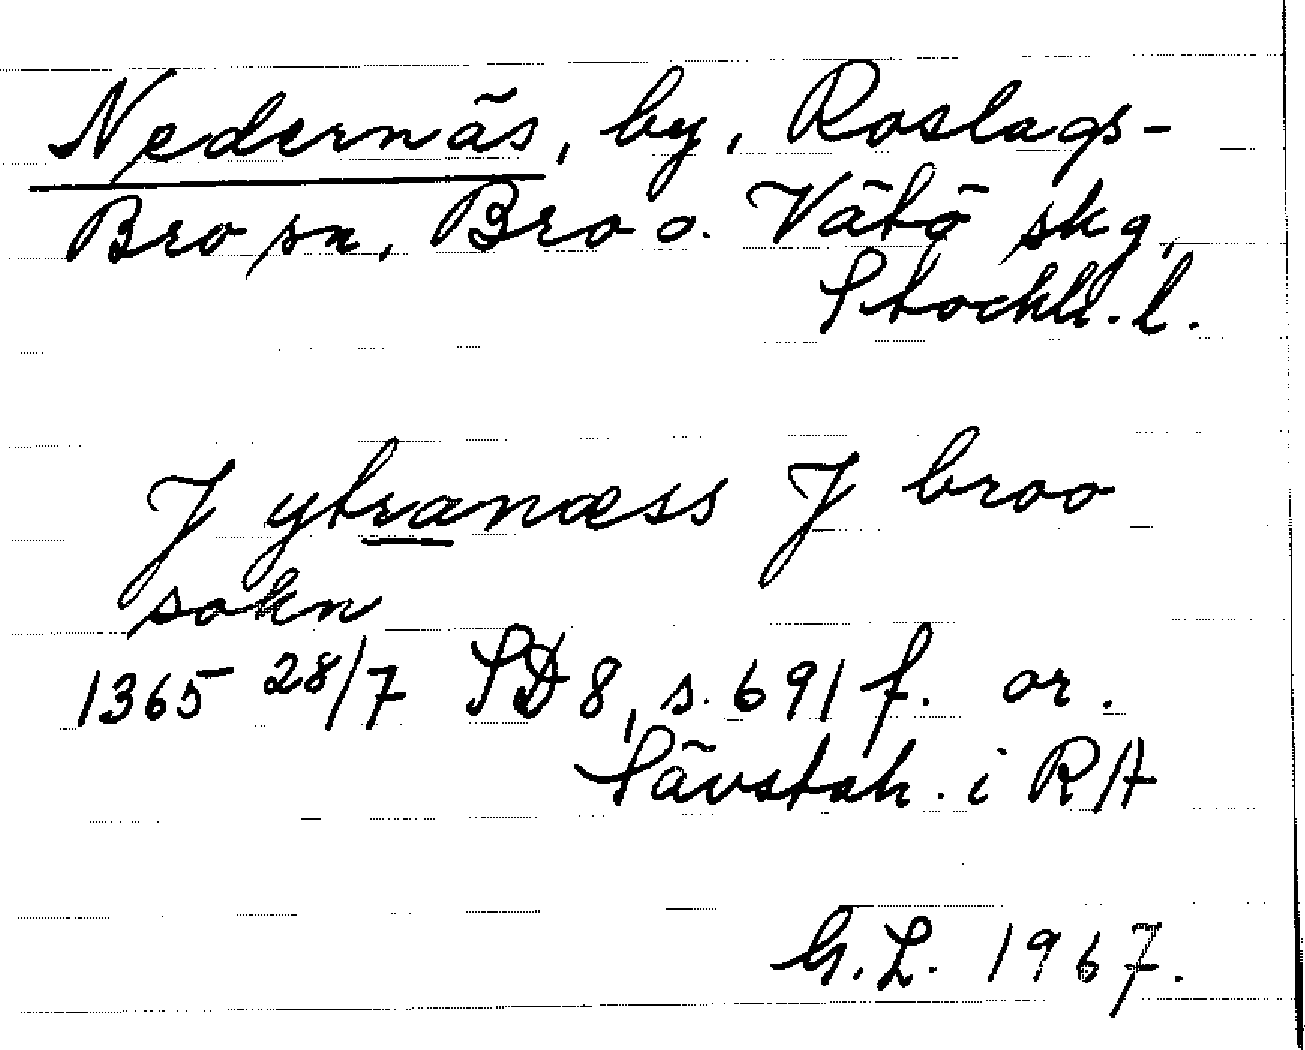 Nedernäs, by, Roslags-
Bro sn, Bro o. Vätö skg,
Stockh. l.
J ytranæss J broo
sokn
1365 28/7 SD 8, s. 691 f. or.
Sävstah. i RA
G.L. 1967.